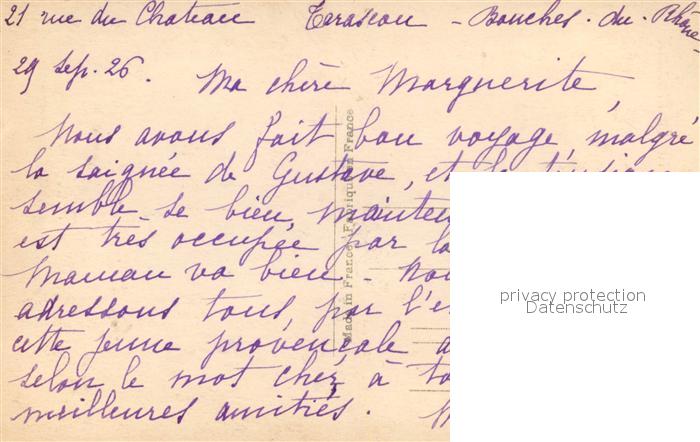 21 rue du Chateau Tarascon - Bouches-du-Rhone-
29 Sep. 26. Ma chère Marguerite,
Nous avons fait bon voyage, malgré
la saignée de Gustave, et la
semble se bien
est très occupée par la
Maman va bien -
adressons tous, par
cette jeune provençale
selon le mot cher, à
meilleures amitiés.
Made in France Fabriqué en France
privacy protection
Datenschutz